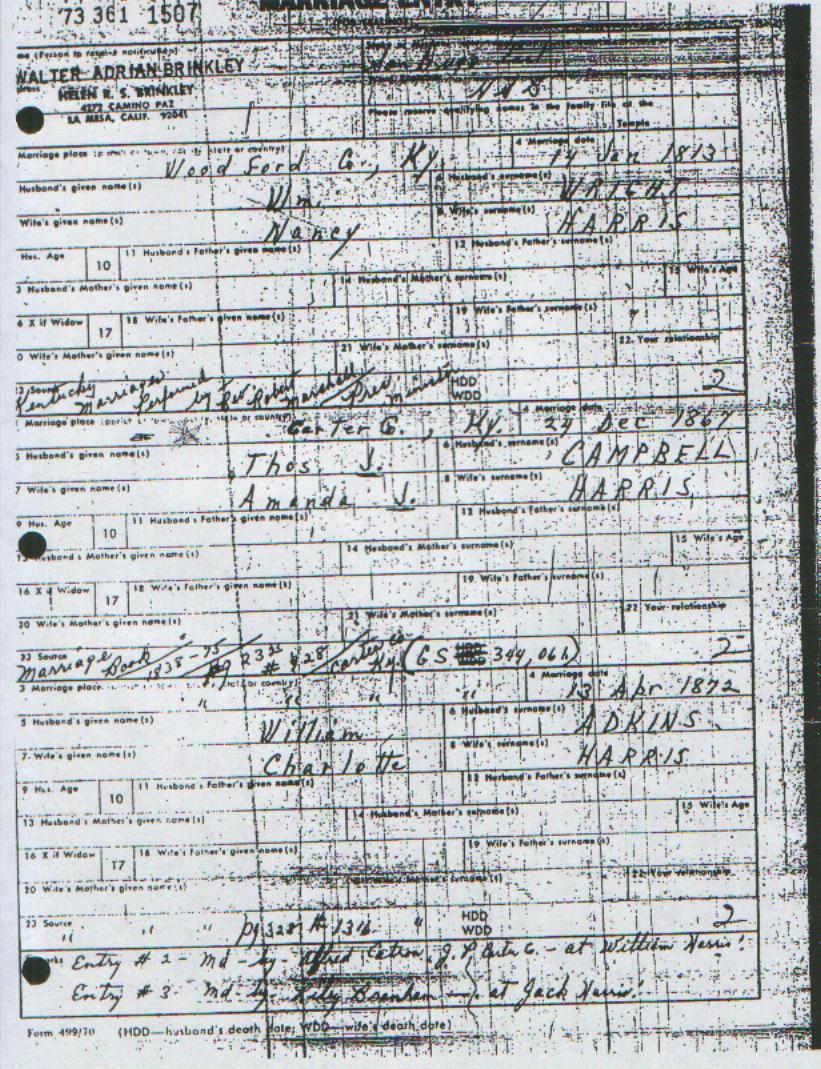 73 361 1507
MARRIAGE ENTRY
me (Person to receive notification)
WALTER ADRIAN BRINKLEY
HELEN R. S. BRINKLEY
4277 CAMINO PAZ
LA MESA, CALIF. 92041
Please reserve qualifying names in the family file at the
Temple
Marriage place state or country) 4 Marriage date
Wood Ford Co., Ky. 14 Jan 1813
Husband's given name(s) 6 Husband's surname(s)
Wm. WRIGHT
Wife's given name(s) 8 Wife's surname(s)
Nancy HARRIS
Hus. Age 10 11 Husband's Father's given name(s) 12 Husband's Father's surname(s)
3 Husband's Mother's given name(s) 14 Husband's Mother's surname(s) 15 Wife's Age
6 X if Widow 17 18 Wife's Father's given name(s) 19 Wife's Father's surname(s)
0 Wife's Mother's given name(s) 21 Wife's Mother's surname(s) 22. Your relationship
23 Source HDD
Kentucky Marriages Performed by Rev. Robert Marshall / Pres Minister WDD 2
Marriage place state or country) 4 Marriage date
Carter Co., Ky. 24 Dec 1867
5 Husband's given name(s) 6 Husband's surname(s)
Thos. J. CAMPBELL
7 Wife's given name(s) 8 Wife's surname(s)
Amanda J. HARRIS
9 Hus. Age 10 11 Husband's Father's given name(s) 12 Husband's Father's surname(s)
13 Husband's Mother's given name(s) 14 Husband's Mother's surname(s) 15 Wife's Age
16 X if Widow 17 18 Wife's Father's given name(s) 19 Wife's Father's surname(s)
20 Wife's Mother's given name(s) 21 Wife's Mother's surname(s) 22 Your relationship
23 Source
Marriage Book 1838-75 / pg 233 # 928 / Carter Co. Ky (GS 344,061) 2
3 Marriage place or country) 4 Marriage date
" " " 13 Apr 1872
5 Husband's given name(s) 6 Husband's surname(s)
William ADKINS
7. Wife's given name(s) 8 Wife's surname(s)
Charlotte HARRIS
9 Hus. Age 10 11 Husband's Father's given name(s) 12 Husband's Father's surname(s)
13 Husband's Mother's given name(s) 14 Husband's Mother's surname(s) 15 Wife's Age
16 X if Widow 17 18 Wife's Father's given name(s) 19 Wife's Father's surname(s)
20 Wife's Mother's given name(s) Mother's surname(s) 22 Your relationship
23 Source HDD
" " " pg 328 # 1316 " WDD 2
Entry # 2 - Md - by - Alfred Catron, J. P. Carter Co. - at William Harris'
Entry # 3 - Md - by - Branham - at Jack Harris'
Form 499/70 (HDD—husband's death date; WDD—wife's death date)